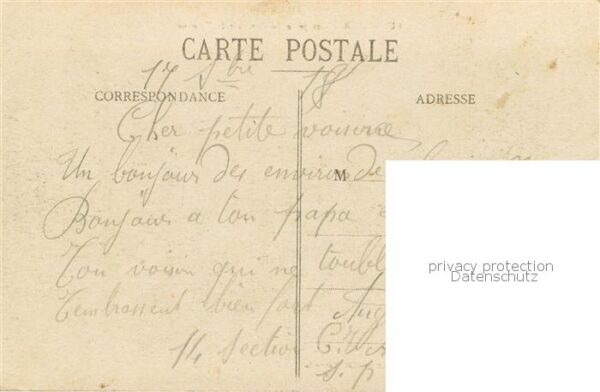 CARTE POSTALE
17 Sbre 18
CORRESPONDANCE
ADRESSE
Cher petite voisine
Un bonjour des environ de
M
Bonjour a ton papa
Ton voisin qui ne toubl
T'embrassent bien fort
14 section
S. P
privacy protection
Datenschutz